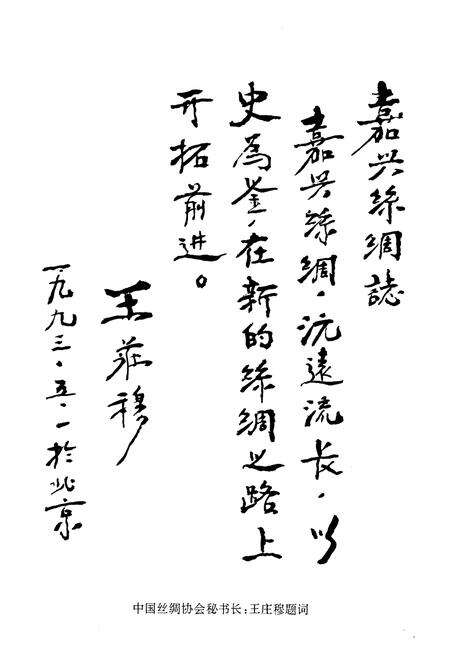 嘉兴絲綢誌
嘉兴絲綢，沅遠流长，以
史為鉴，在新的絲綢之路上
开拓前进。
王莊穆
一九九三·五·一於北京
中国丝绸协会秘书长：王庄穆题词